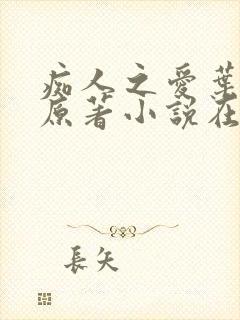 痴人之愛葉
原著小說在
長矢